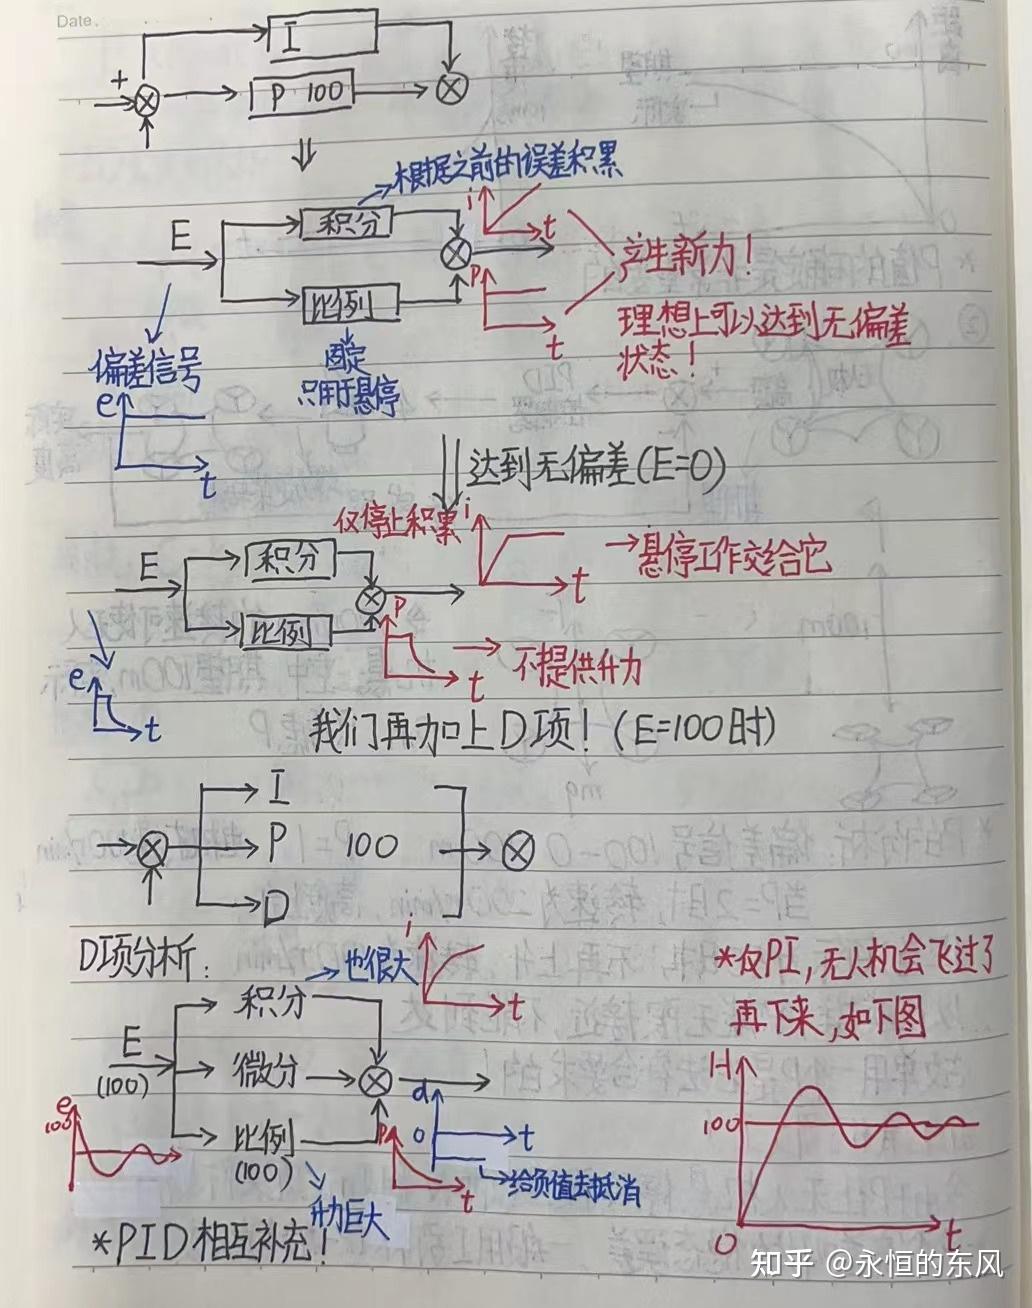 Date.
I
+
P 100
根据之前的误差积累
i
t
E
积分
产生新力!
P
比例
t
理想上可以达到无偏差
状态!
偏差信号
固定
只用于悬停
e
t
达到无偏差(E=0)
仅停止积累
i
t
→悬停工作交给它
E
积分
比例
P
t
不提供升力
e
t
我们再加上D项!(E=100时)
I
P 100
D
D项分析:
也很大
i
t
*仅PI,无人机会飞过了
再下来,如下图
积分
E
(100)
微分
比例
(100)
e
100
P
t
d
0
t
给负值去抵消
升力巨大
H
100
0
t
*PID相互补充!
知乎 @永恒的东风